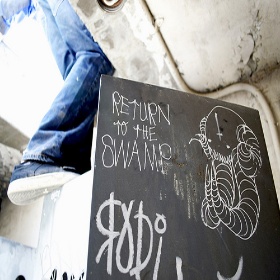 RETURN
TO THE
SWAMP